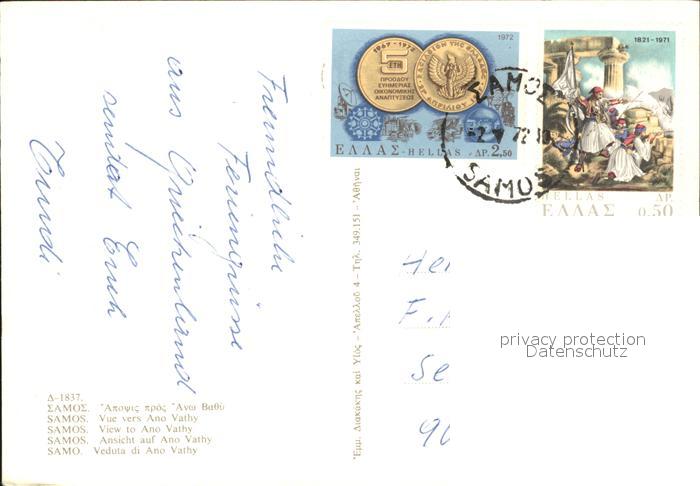 Freundliche
Feriengrüsse
aus Griechenland
sendet Euch
Trudi
Δ-1837.
ΣΑΜΟΣ. Ἄποψις πρὸς Ἄνω Βαθὺ
SAMOS. Vue vers Ano Vathy
SAMOS. View to Ano Vathy
SAMOS. Ansicht auf Ano Vathy
SAMO. Veduta di Ano Vathy
Ἐμμ. Διακάκης καὶ Υἱός - Ἀπελλοῦ 4 - Τηλ. 349.151 - Ἀθῆναι
1972
1967-1972
5
ΕΤΗ
ΠΡΟΟΔΟΥ
ΕΥΗΜΕΡΙΑΣ
ΟΙΚΟΝΟΜΙΚΗΣ
ΑΝΑΠΤΥΞΕΟΣ
ΕΛΛΑΣ-HELLAS ΔΡ. 2,50
1821-1971
HELLAS ΔΡ.
ΕΛΛΑΣ 0.50
ΣΑΜΟΣ
72
SAMOS
He
F.
Se
90
privacy protection
Datenschutz